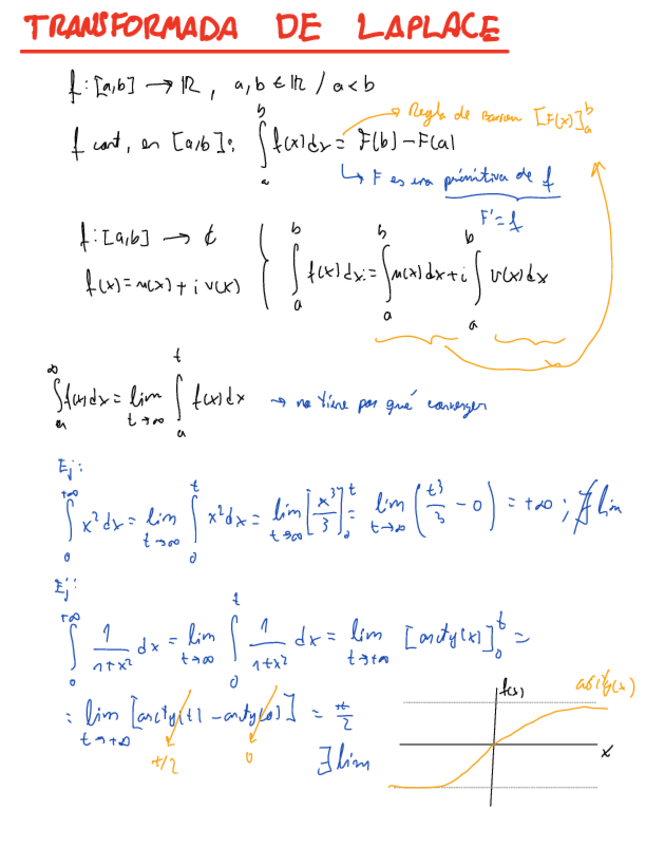 TRANSFORMADA DE LAPLACE
f: [a,b] → ℝ, a,b ∈ ℝ / a<b
→ Regla de Barrow [F(x)]_a^b
f cont, en [a,b]: ∫_a^b f(x)dx = F(b) - F(a)
↳ F es una primitiva de f
F' = f
f: [a,b] → ℂ
f(x) = u(x) + i v(x) { ∫_a^b f(x)dx = ∫_a^b u(x)dx + i ∫_a^b v(x)dx
∫_a^∞ f(x)dx = lim_{t→∞} ∫_a^t f(x)dx → no tiene por qué converger
Ej:
∫_0^{+∞} x² dx = lim_{t→∞} ∫_0^t x² dx = lim_{t→∞} [x³/3]_0^t = lim_{t→∞} (t³/3 - 0) = +∞ ; ∄ lim
Ej:
∫_0^{+∞} 1/(1+x²) dx = lim_{t→∞} ∫_0^t 1/(1+x²) dx = lim_{t→+∞} [arctg(x)]_0^t =
= lim_{t→+∞} [arctg(t) - arctg(0)] = π/2
π/2 0 ∃ lim
f(x) arctg(x)
x